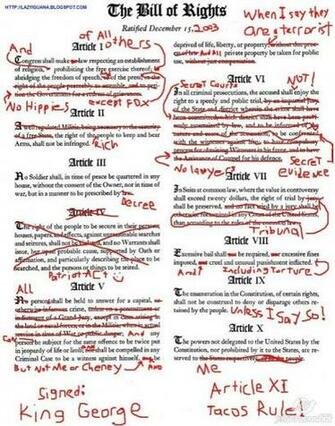 HTTP://LAZYIGUANA.BLOGSPOT.COM
The Bill of Rights
When I say they
are terrorist
Ratified December 15, 2003
And
of All
others
Article I
Congress shall make no law respecting an establishment
of religion, or prohibiting the free exercise thereof; or
abridging the freedom of speech, or of the press; or the
right of the people peaceably to assemble, and to petition
the Government for a redress of grievances.
No Hippies
except FOX
Article II
A well regulated Militia, being necessary to the security
of a free State, the right of the people to keep and bear
Arms, shall not be infringed.
Rich
Article III
No Soldier shall, in time of peace be quartered in any
house, without the consent of the Owner, nor in time of
war, but in a manner to be prescribed by law.
Decree
Article IV
The right of the people to be secure in their persons,
houses, papers, and effects, against unreasonable searches
and seizures, shall not be violated, and no Warrants shall
issue, but upon probable cause, supported by Oath or
affirmation, and particularly describing the place to be
searched, and the persons or things to be seized.
Patriot ACT
All
Article V
No person shall be held to answer for a capital, or
otherwise infamous crime, unless on a presentment or
indictment of a Grand Jury, except in cases arising in
the land or naval forces, or in the Militia, when in actual
service in time of War or public danger; And
any
person be subject for the same offence to be twice put
Can
in jeopardy of life or limb; and shall be compelled in any
Criminal Case to be a witness against himself,
But Not Me or Cheney
And
Signed:
King George
deprived of life, liberty, or property, without due process
of law; private property be taken for public
use, without just compensation.
Article VI
Secret Courts
NOT!
In all criminal prosecutions, the accused shall enjoy the
right to a speedy and public trial, by an impartial jury
of the State and district wherein the crime shall have
been committed, which district shall have been previously
ascertained by law, and to be informed of the
nature and cause of the accusation; to be confronted
with the witnesses against him; to have compulsory
process for obtaining Witnesses in his favor, and to have
the Assistance of Counsel for his defence.
No lawyer
Secret
evidence
Article VII
In Suits at common law, where the value in controversy
shall exceed twenty dollars, the right of trial by jury
shall be preserved, and no fact tried by a jury, shall be
otherwise reexamined in any Court of the United States,
than according to the rules of the common law.
Tribunal
Article VIII
Excessive bail shall be required, nor excessive fines
imposed, cruel and unusual punishments inflicted.
And
Including torture
Article IX
The enumeration in the Constitution, of certain rights,
shall not be construed to deny or disparage others
retained by the people.
Unless I Say So!
Article X
The powers not delegated to the United States by the
Constitution, nor prohibited by it to the States, are re-
served to the States respectively, or to the people.
Me
Article XI
Tacos Rule!